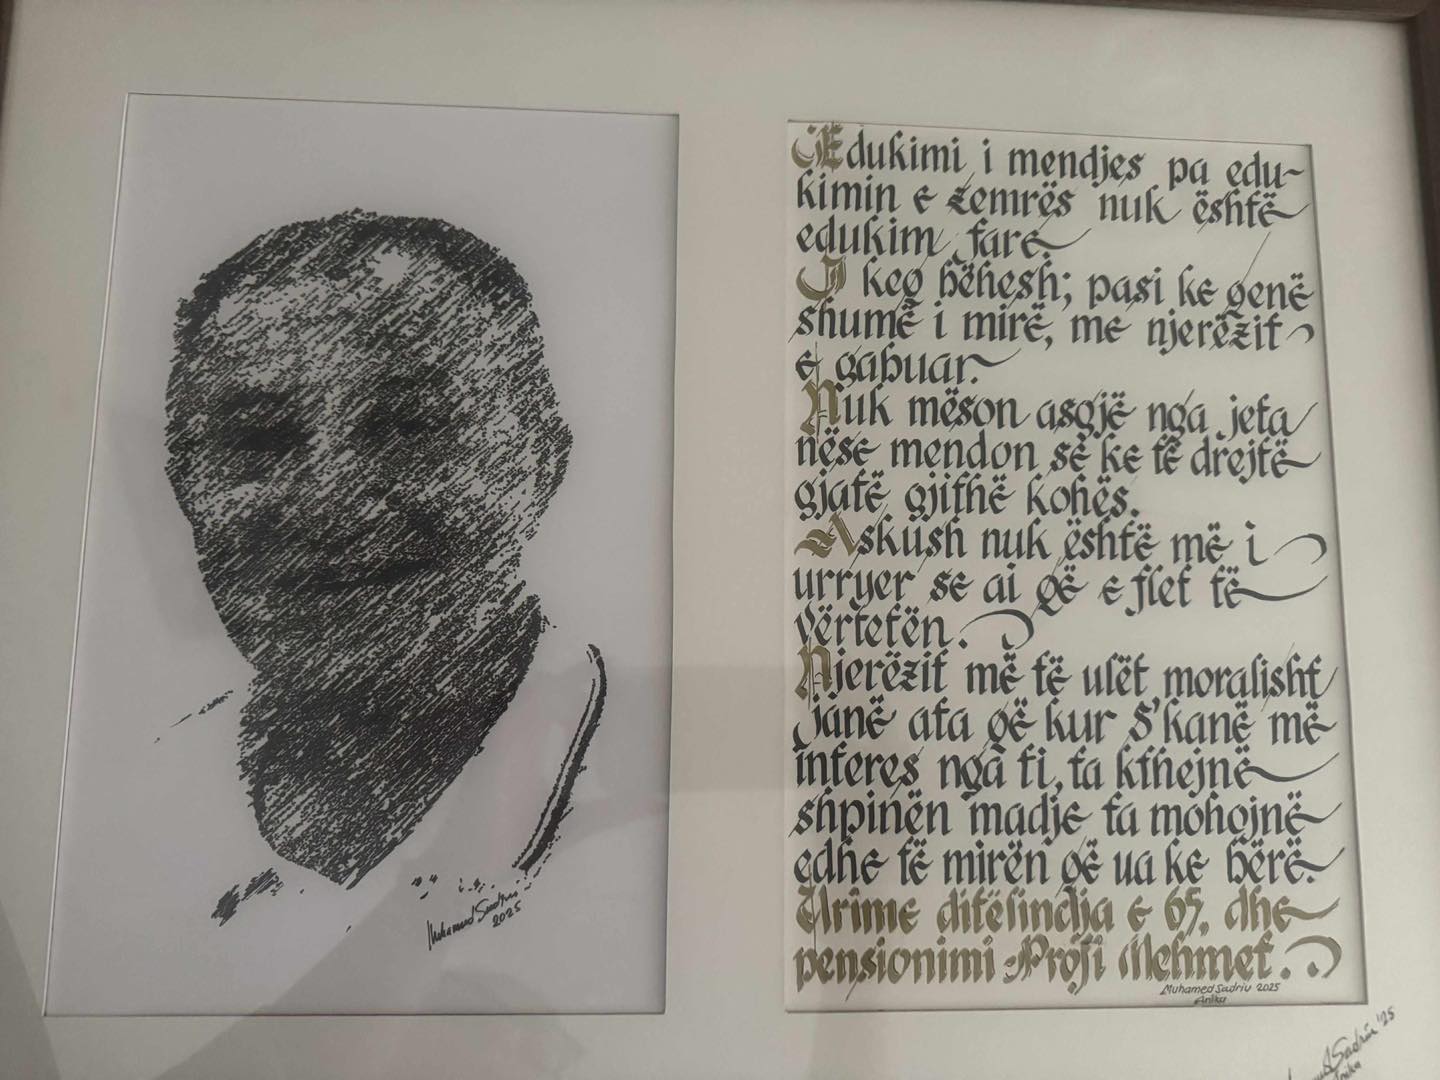 Edukimi i mendjes pa edu-
kimin e zemrës nuk është
edukim fare.
I keq bëhesh; pasi ke qenë
shumë i mirë, me njerëzit
e gabuar.
Nuk mëson asgjë nga jeta
nëse mendon se ke të drejtë
gjatë gjithë kohës.
Askush nuk është më i
urryer se ai që e flet të
vërtetën.
Njerëzit më të ulët moralisht
janë ata që kur s'kanë më
interes nga ti, ta kthejnë
shpinën madje ta mohojnë
edhe të mirën që ua ke bërë.
Urime ditëlindja e 65, dhe
pensionimi Profi Mehmet.
Muhamed Sadriu 2025
Anika
Muhamed Sadriu
2025
Sadriu '25
Anika